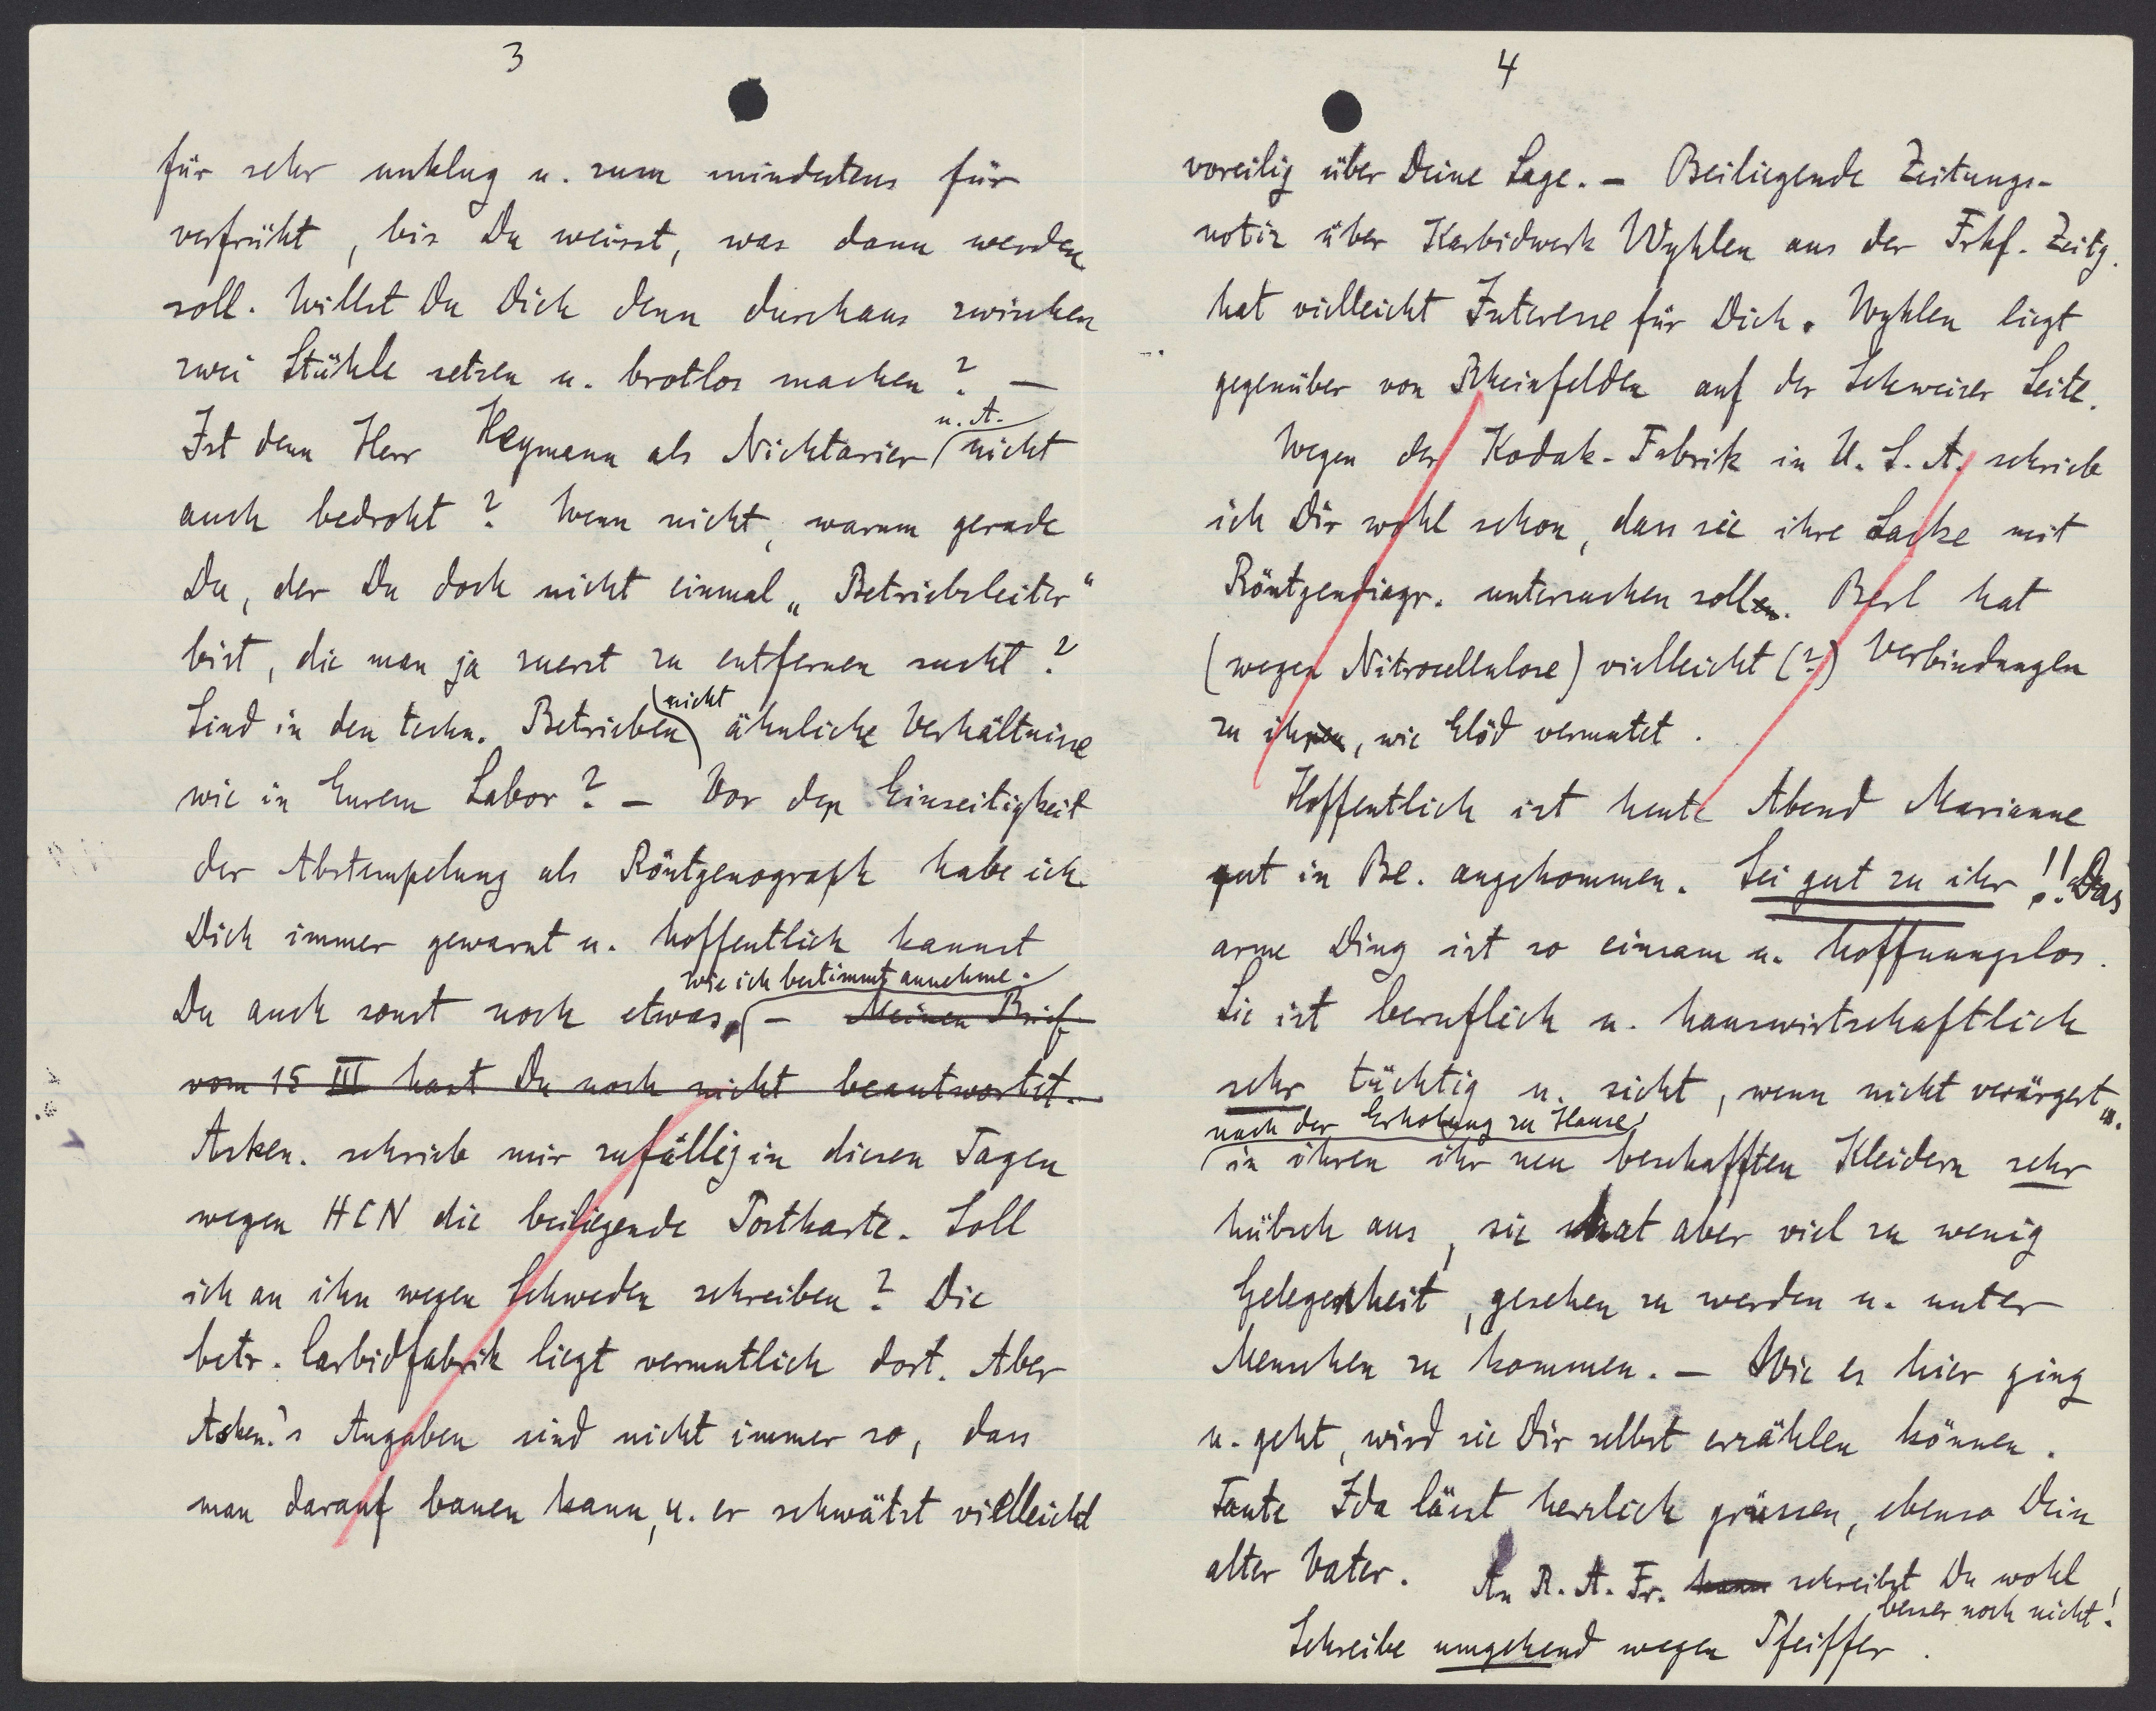 3
für sehr unklug u. zum mindestens für
verfrüht, bis Du weisst, was dann werden
soll. Willst Du Dich denn durchaus zwischen
zwei Stühle setzen u. brotlos machen? —
u. A.
Ist denn Herr Heymann als Nichtarier nicht
auch bedroht? Wenn nicht, warum gerade
Du, der Du doch nicht einmal „Betriebsleiter"
bist, die man ja zuerst zu entfernen sucht?
nicht
Sind in den techn. Betrieben ähnliche Verhältnisse
wie in Eurem Labor? — Vor der Einseitigkeit
der Abstempelung als Röntgenograph habe ich
Dich immer gewarnt u. hoffentlich kannst
wie ich bestimmt annehme.
Du auch sonst noch etwas, — Meinen Brief
vom 15 III hast Du noch nicht beantwortet.
Asken. schrieb mir zufällig in diesen Tagen
wegen HCN die beiliegende Postkarte. Soll
ich an ihn wegen Schweden schreiben? Die
betr. Carbidfabrik liegt vermutlich dort. Aber
Asken.'s Angaben sind nicht immer so, dass
man darauf bauen kann, u. er schwätzt vielleicht
4
voreilig über Deine Lage. — Beiliegende Zeitungs-
notiz über Karbidwerk Wyhlen aus der Frkf. Zeitg.
hat vielleicht Interesse für Dich. Wyhlen liegt
gegenüber von Rheinfelden auf der Schweizer Seite.
Wegen der Kodak-Fabrik in U. S. A. schrieb
ich Dir wohl schon, dass sie ihre Lacke mit
Röntgendiagr. untersuchen sollen. Berl hat
(wegen Nitrocellulose) vielleicht (?) Verbindungen
zu ihnen, wie Clöd vermutet.
Hoffentlich ist heute Abend Marianne
gut in Be. angekommen. Sei gut zu ihr!! Das
arme Ding ist so einsam u. hoffnungslos.
Sie ist beruflich u. hauswirtschaftlich
sehr tüchtig u. sieht, wenn nicht verärgert u.
nach der Erholung zu Hause
in ihren ihr neu beschafften Kleidern sehr
hübsch aus, sie hat aber viel zu wenig
Gelegenheit, gesehen zu werden u. unter
Menschen zu kommen. — Wie es hier ging
u. geht, wird sie Dir selbst erzählen können.
Tante Ida lässt herzlich grüssen, ebenso Dein
alter Vater. An R. A. Fr. kann schreibst Du wohl
besser noch nicht!
Schreibe umgehend wegen Pfeiffer.